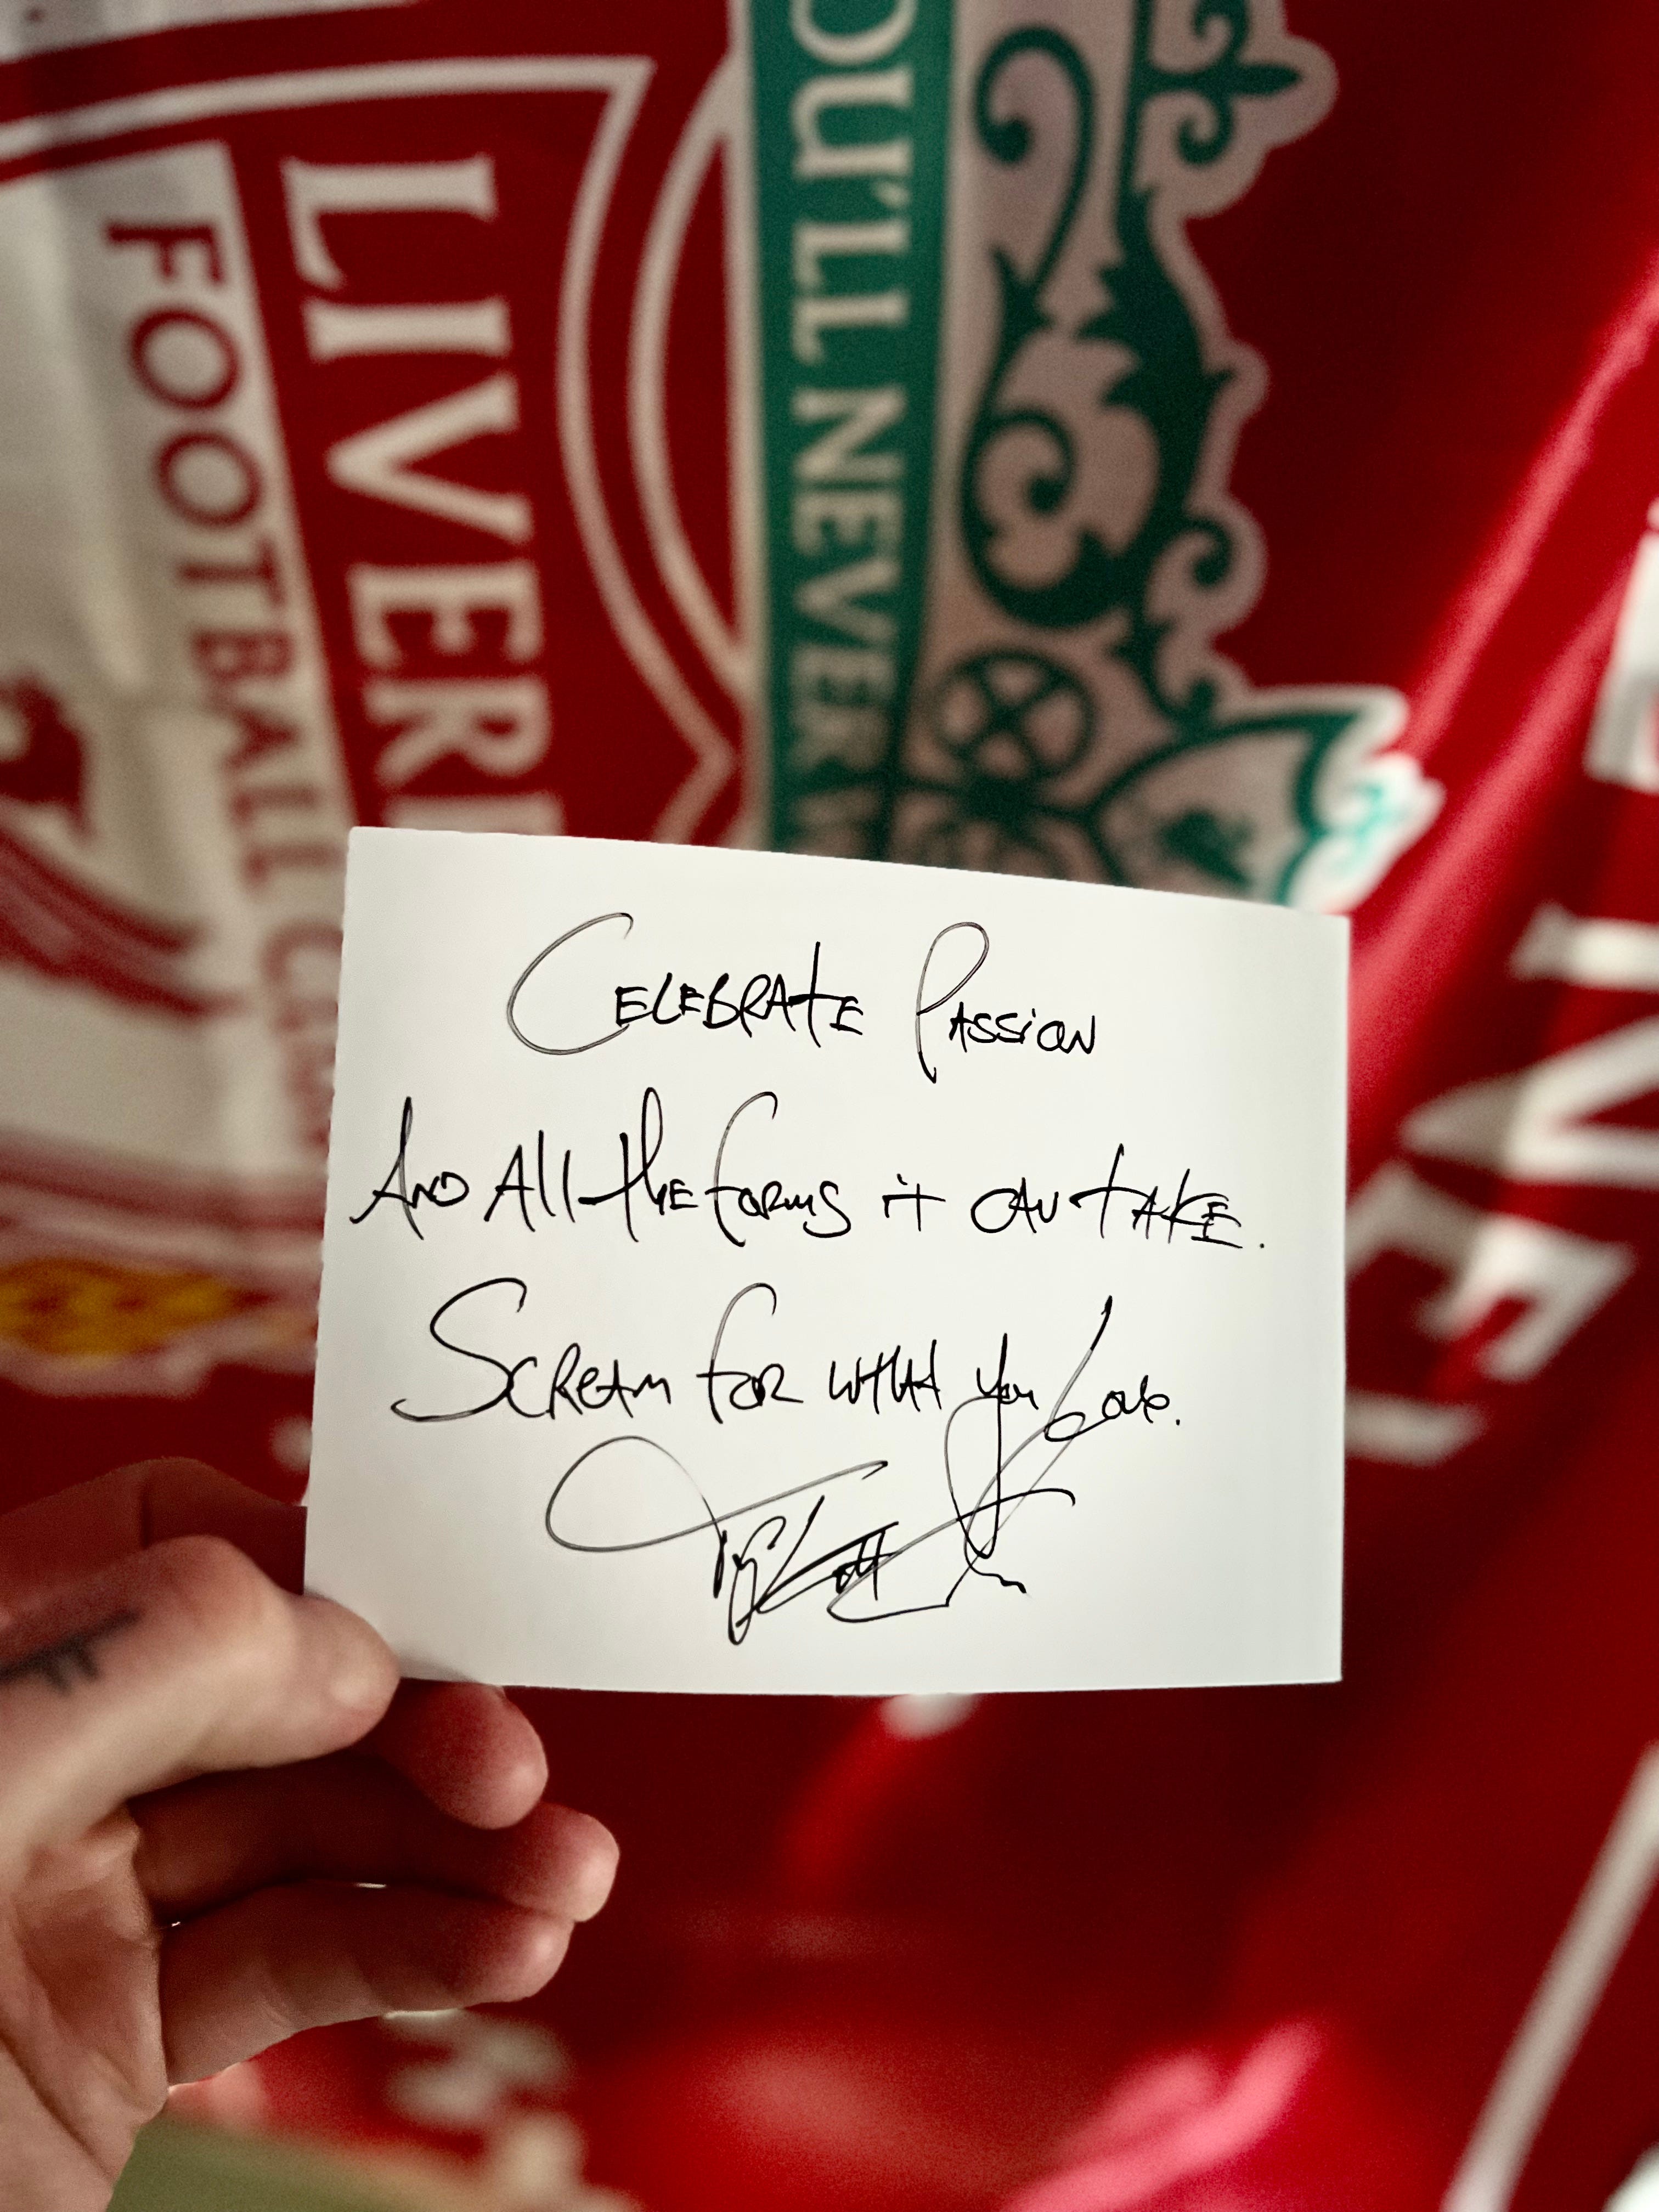 OU'LL NEVER W
LIVERP
FOOTBALL CLUB
CELEBRATE PASSION
AND All the forms it CAN TAKE.
SCREAM for WHAT you Love.